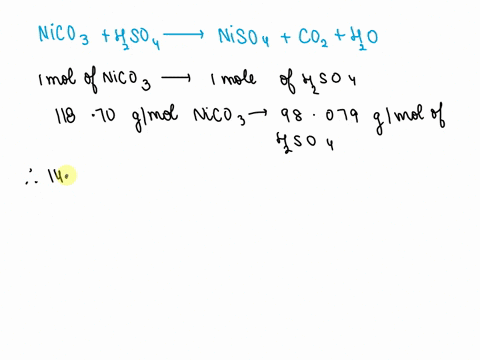 NiCO3 + H2SO4 ⟶ NiSO4 + CO2 + H2O
1 mol of NiCO3 ⟶ 1 mole of H2SO4
118.70 g/mol NiCO3 → 98.079 g/mol of
H2SO4
∴ 14.